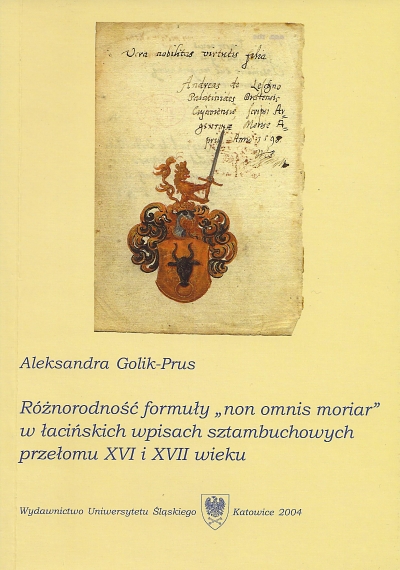 Vera nobilitas virtutis filia
Andreas de Leſzno
Palatinides Brestensis
Cujaviensis scripsi Ar-
gentinæ Mense A-
pri: Anno 1598
Aleksandra Golik-Prus
Różnorodność formuły „non omnis moriar”
w łacińskich wpisach sztambuchowych
przełomu XVI i XVII wieku
Wydawnictwo Uniwersytetu Śląskiego Katowice 2004